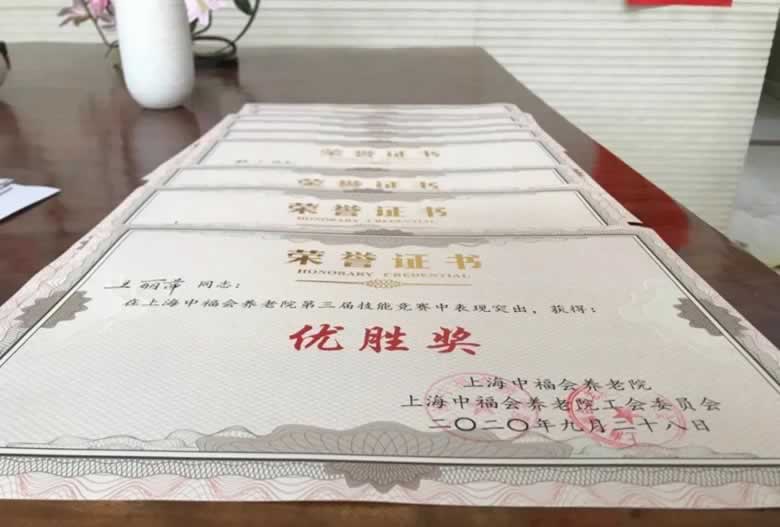 荣誉证书
荣誉证书
荣誉证书
HONORARY CREDENTIAL
荣誉证书
HONORARY CREDENTIAL
王丽萍 同志：
在上海中福会养老院第三届技能竞赛中表现突出，获得：
优胜奖
上海中福会养老院
上海中福会养老院工会委员会
二〇二〇年九月二十八日